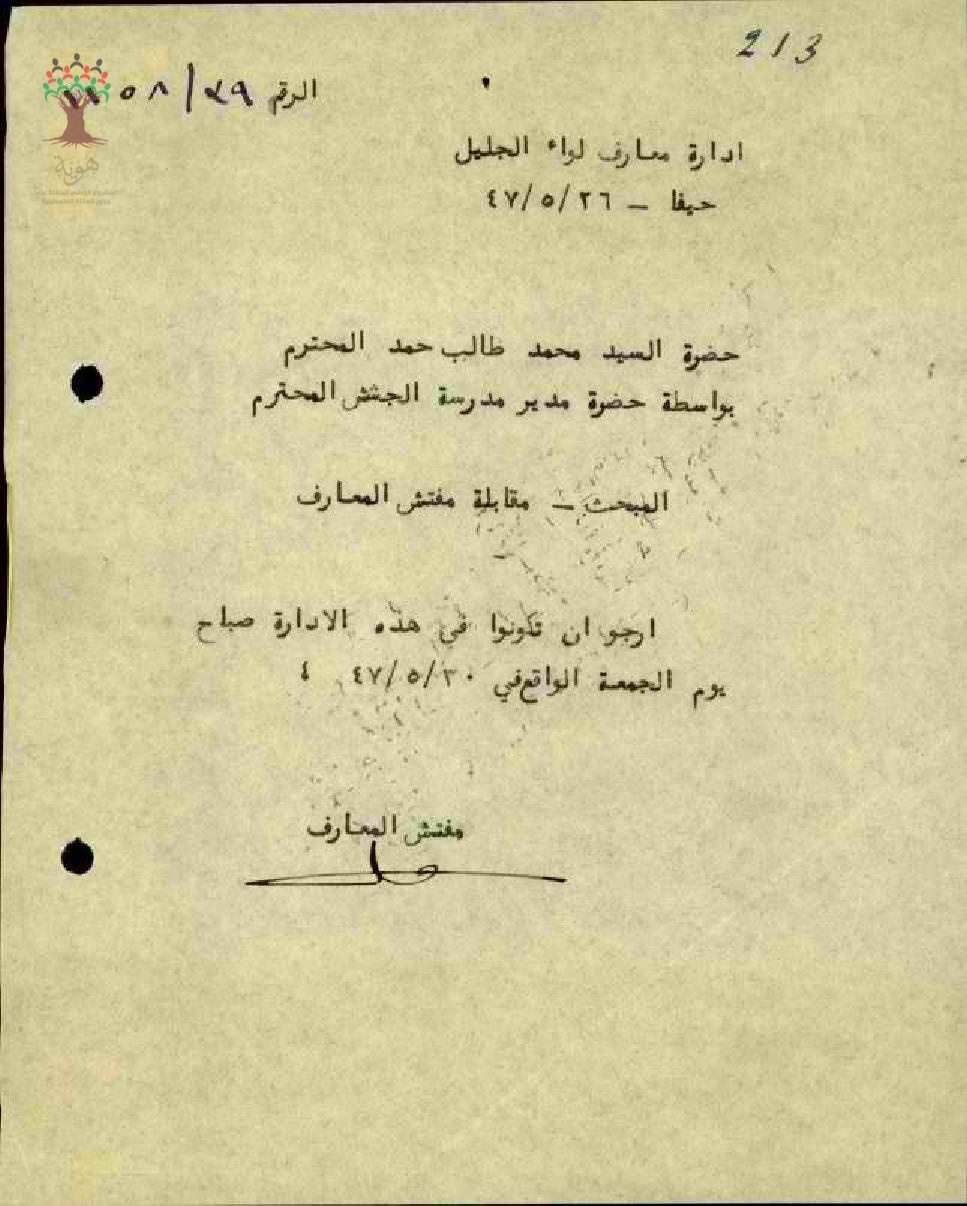 213
الرقم ٥٨/٣٩
ادارة معارف لواء الجليل
حيفا – ٤٧/٥/٢٦
حضرة السيد محمد طالب حمد المحترم
بواسطة حضرة مدير مدرسة الجش المحترم
المبحث – مقابلة مفتش المعارف
ارجو ان تكونوا في هذه الادارة صباح
يوم الجمعة الواقع في ٤٧/٥/٣٠ ؛
مفتش المعارف
هوية